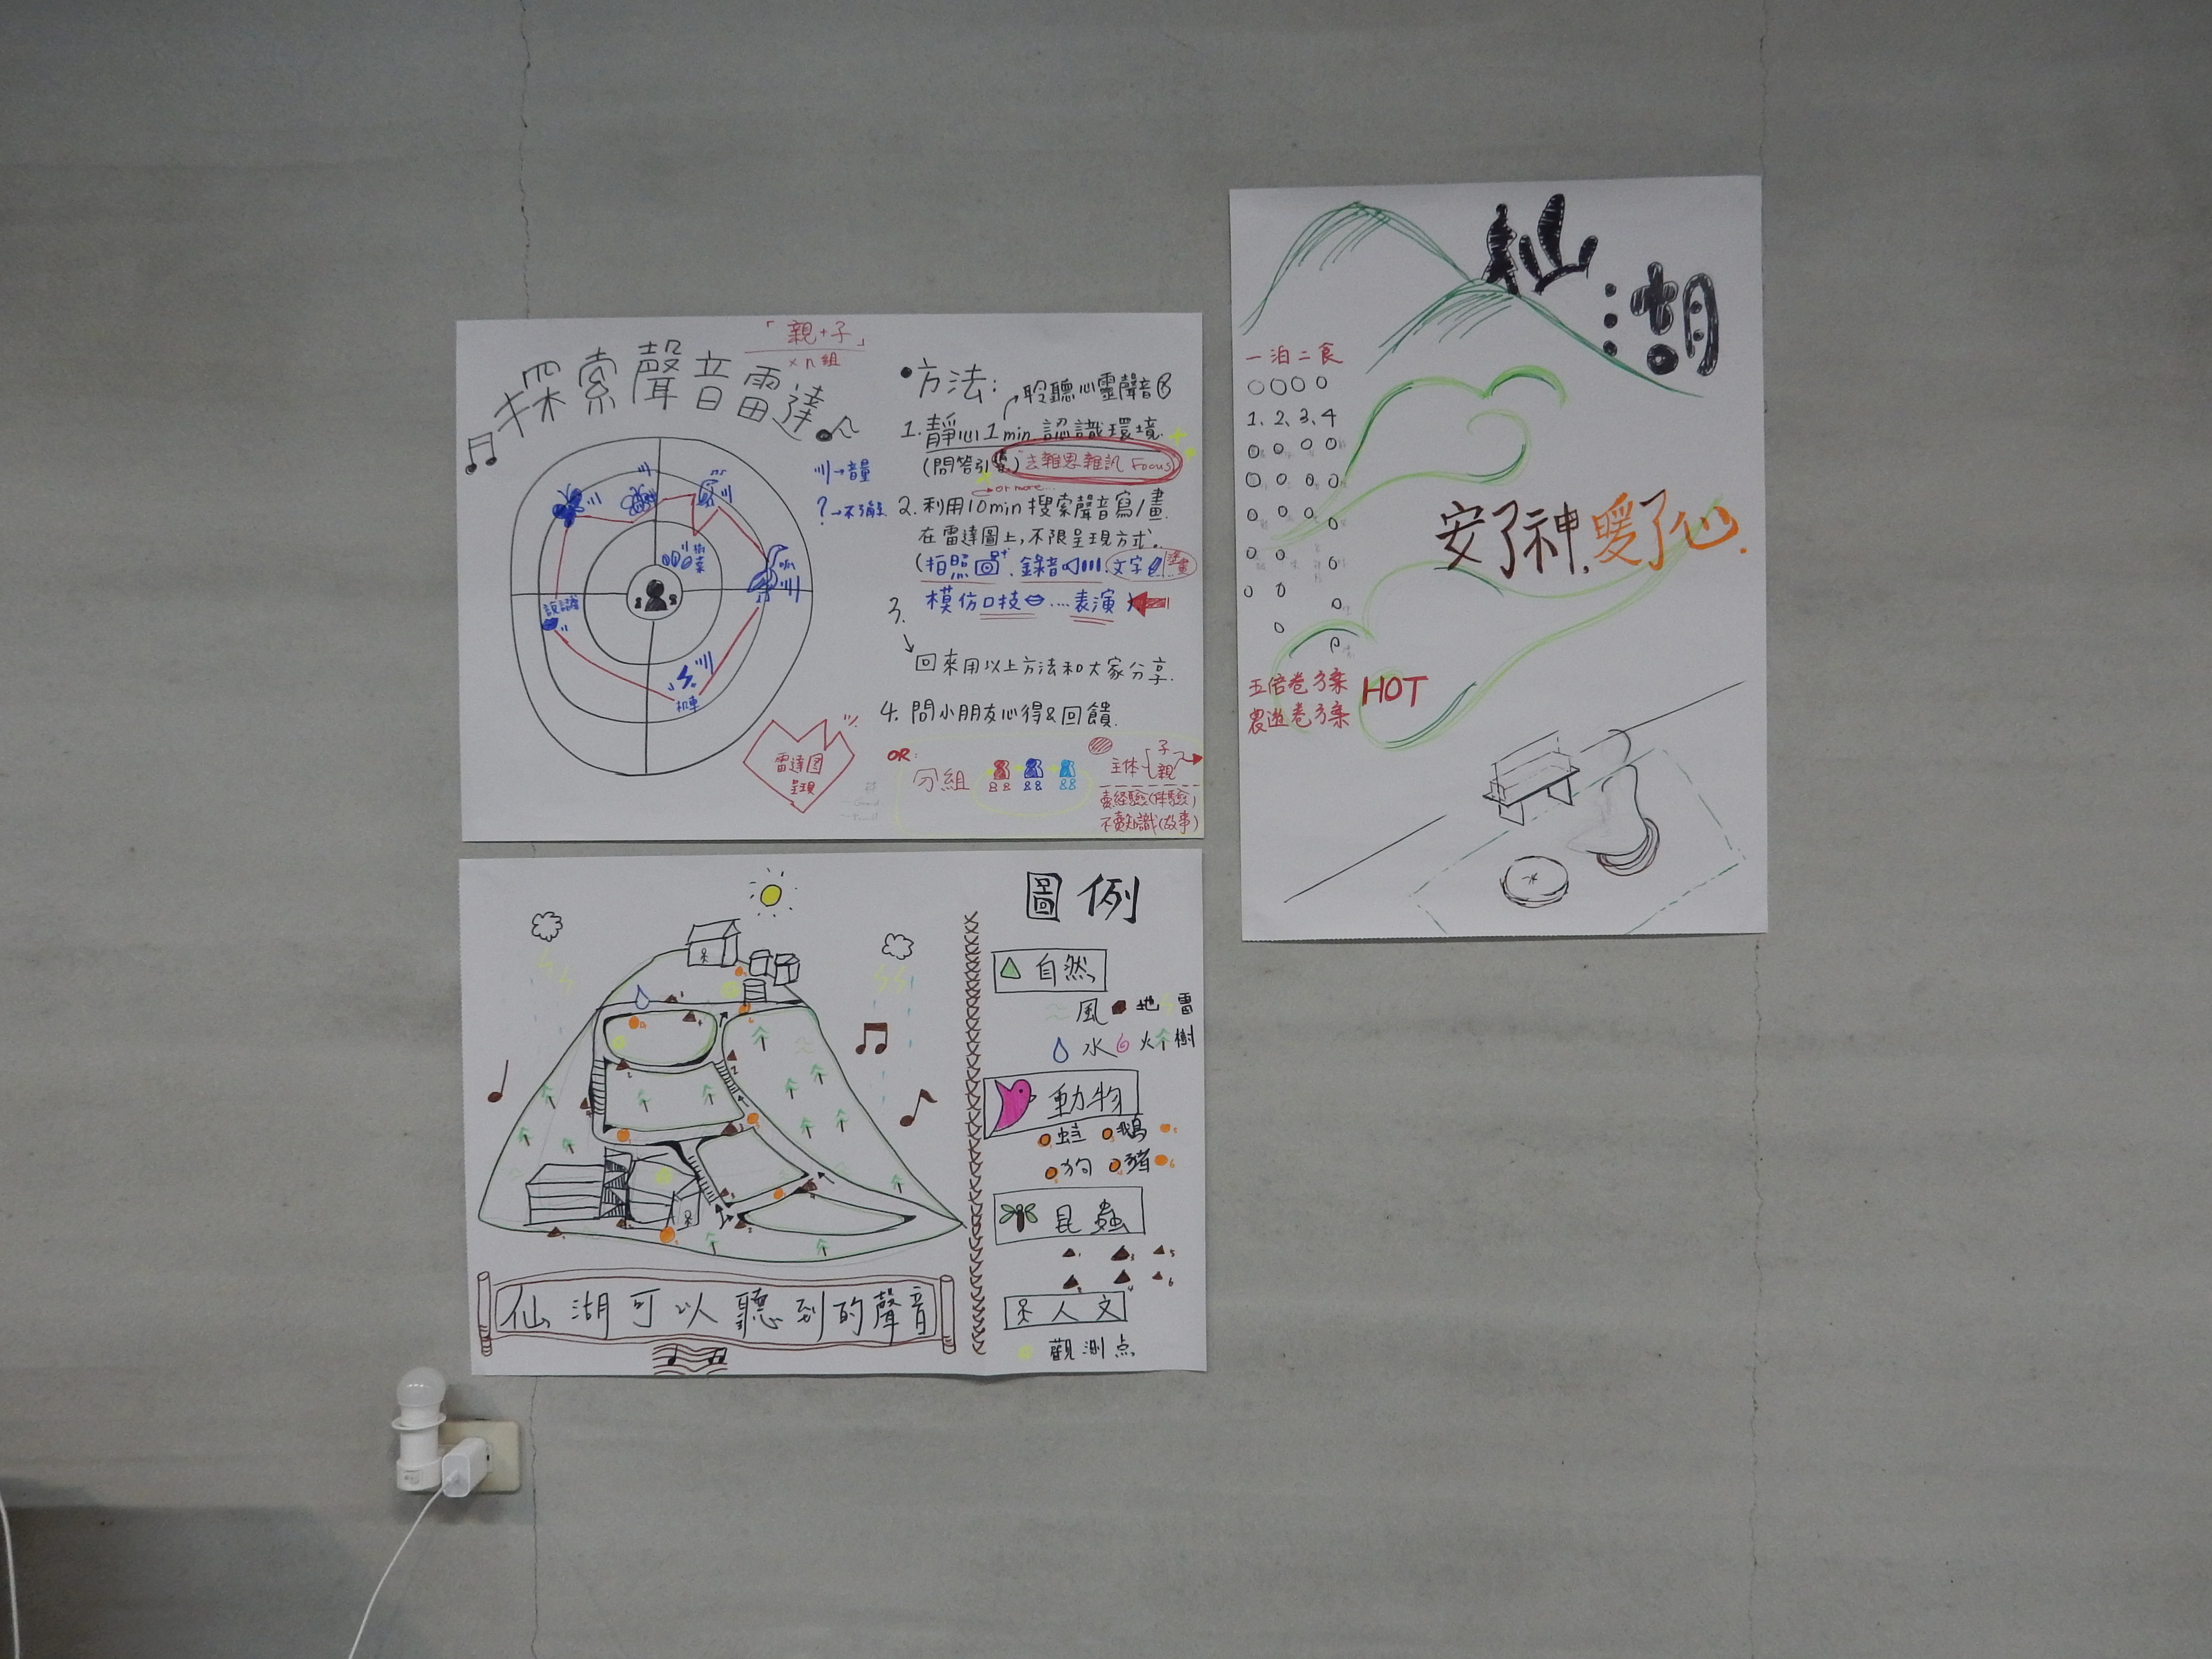 探索聲音雷達
「親+子」
×n組
→音量
?→不了解
樹葉
說話聲
机車
雷達図
呈現
方法:
聆聽心靈聲音
1. 靜心1min 認識環境.
(問答引導) 去雜思雜訊 Focus
or more...
2. 利用10min 搜索聲音寫/畫
在雷達圖上,不限呈現方式.
(拍照圖.錄音.文字
模仿口技....表演
3.
回來用以上方法和大家分享.
4. 問小朋友心得&回饋.
OR:
分組
主体
子
親
賣経驗(体驗)
不賣知識(故事)
仙湖
一泊二食
1、2、3、4
安了神.暖了心.
五倍卷方案
農遊卷方案
HOT
仙湖可以聽到的聲音
圖例
自然
風 地 雷
水 火 樹
動物
蛙 鵝
狗 豬
昆蟲
人文
觀測点